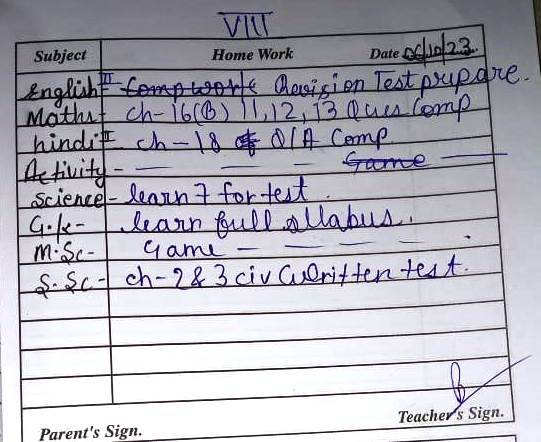 VIII
Subject Home Work Date 06/10/23.
English II Comp work Revision Test prepare.
Maths - ch-16(B) 11,12,13 Ques Comp
hindi II ch-18 Q/A Comp
Activity - — — — Game —
Science - learn 7 for test
G.k - learn full sllabus.
M.Sc - Game — — — —.
S.Sc - ch-2 & 3 civ Written test.
Parent's Sign. Teacher's Sign.